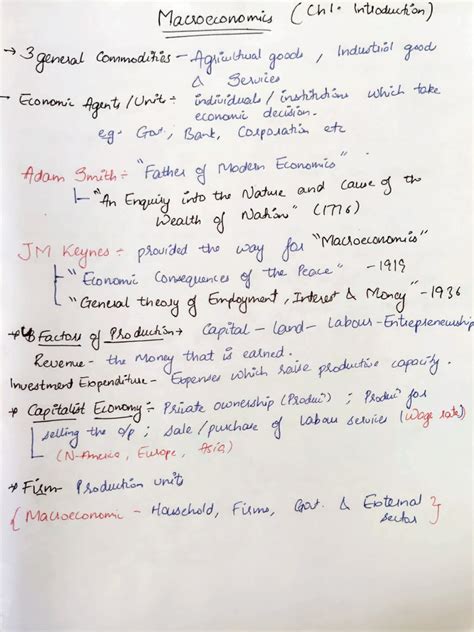 Macroeconomics (Ch1: Introduction)
→ 3 general Commodities - Agricultural goods, Industrial good
& Services
- Economic Agents/Unit ÷ individuals/institutions which take
economic decision.
eg. Gov, Bank, Corporation etc
Adam Smith ÷ "Father of Modern Economics"
"An Enquiry into the Nature and Cause of the
Wealth of Nation" (1776)
JM Keynes ÷ provided the way for "Macroeconomics"
"Economic Consequences of the Peace" - 1919
"General theory of Employment, Interest & Money" - 1936
→ 4 Factors of Production → Capital - Land - Labour - Entrepreneurship
Revenue - the money that is earned.
Investment Expenditure - Expenses which raise productive capacity.
→ Capitalist Economy ÷ Private ownership (Produⁿ) ; Produⁿ for
selling the o/p ; sale/purchase of labour services (wage rate)
(N-America, Europe, Asia)
→ Firm - Production unit
{ Macroeconomic - Household, Firms, Govt. & External
sector }